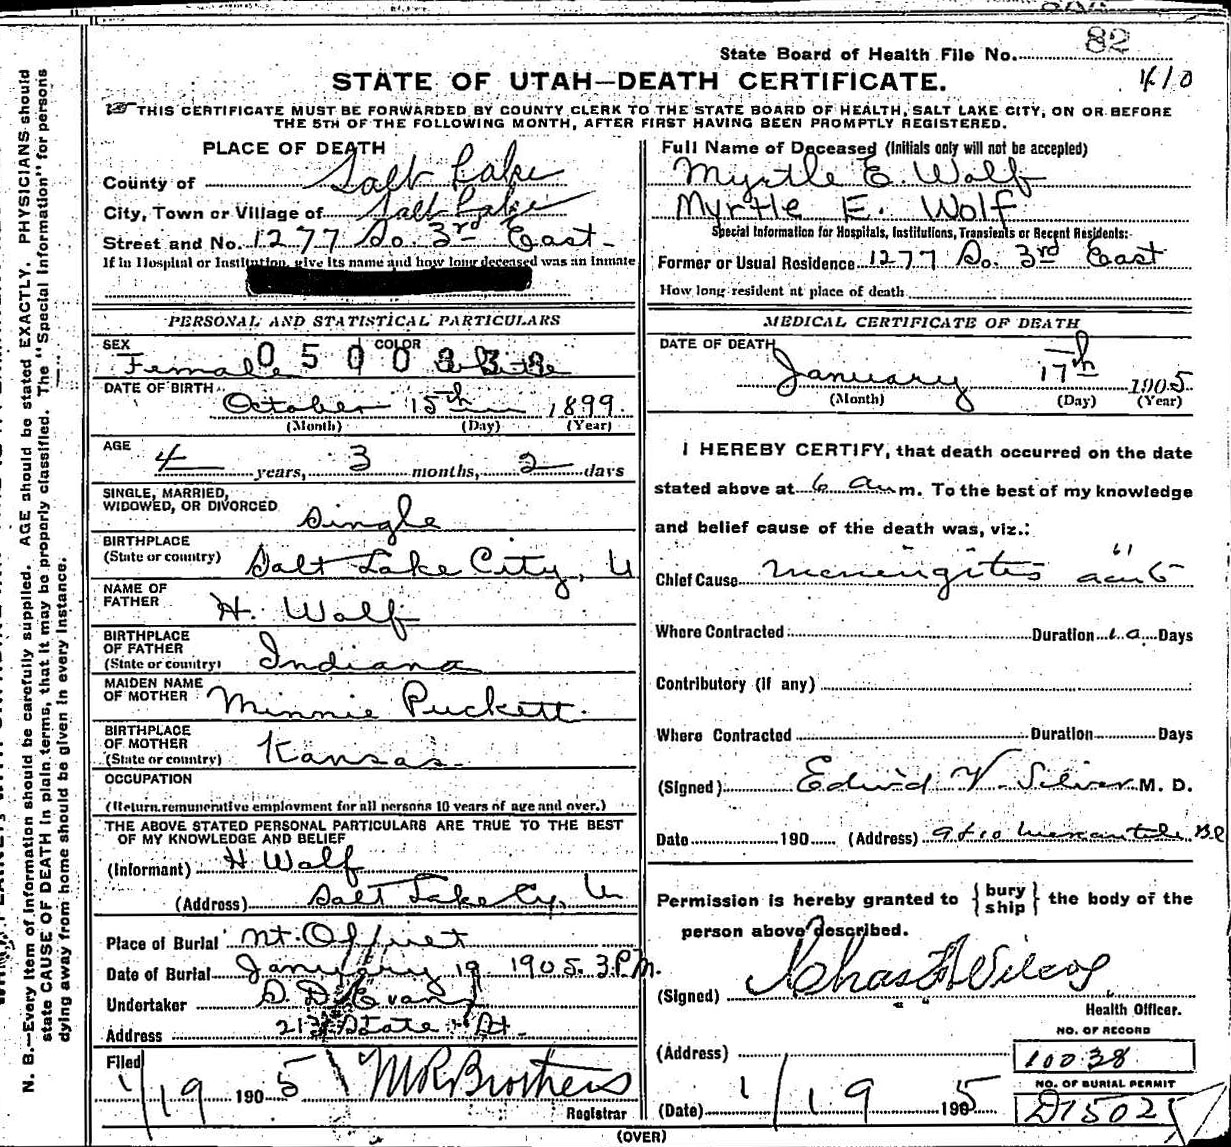 State Board of Health File No. 82
410
STATE OF UTAH—DEATH CERTIFICATE.
THIS CERTIFICATE MUST BE FORWARDED BY COUNTY CLERK TO THE STATE BOARD OF HEALTH, SALT LAKE CITY, ON OR BEFORE
THE 5TH OF THE FOLLOWING MONTH, AFTER FIRST HAVING BEEN PROMPTLY REGISTERED.
PLACE OF DEATH
County of Salt Lake
City, Town or Village of Salt Lake
Street and No. 1277 So. 3rd East
If in Hospital or Institution, give its name and how long deceased was an inmate
PERSONAL AND STATISTICAL PARTICULARS
SEX COLOR
Female White
0500
DATE OF BIRTH
October 15th 1899
(Month) (Day) (Year)
AGE
4 years, 3 months, 2 days
SINGLE, MARRIED,
WIDOWED, OR DIVORCED Single
BIRTHPLACE
(State or country) Salt Lake City, U
NAME OF
FATHER H. Wolf
BIRTHPLACE
OF FATHER
(State or country) Indiana
MAIDEN NAME
OF MOTHER Minnie Puckett
BIRTHPLACE
OF MOTHER
(State or country) Kansas
OCCUPATION
(Return remunerative employment for all persons 10 years of age and over.)
THE ABOVE STATED PERSONAL PARTICULARS ARE TRUE TO THE BEST
OF MY KNOWLEDGE AND BELIEF
(Informant) H Wolf
(Address) Salt Lake Cy, U
Place of Burial Mt. Olivet
Date of Burial January 19 1905. 3 P.M.
Undertaker S. D. Evans
Address 21 State St.
Filed
1/19 1905 M R Brothers
Registrar
Full Name of Deceased (Initials only will not be accepted)
Myrtle E. Wolf
Myrtle E. Wolf
Special Information for Hospitals, Institutions, Transients or Recent Residents:
Former or Usual Residence 1277 So. 3rd East
How long resident at place of death
MEDICAL CERTIFICATE OF DEATH
DATE OF DEATH
January 17th 1905
(Month) (Day) (Year)
I HEREBY CERTIFY, that death occurred on the date
stated above at 6 a m. To the best of my knowledge
and belief cause of the death was, viz.:
Chief Cause meningitis
Where Contracted Duration Days
Contributory (if any)
Where Contracted Duration Days
(Signed) Edwid V. Silver M. D.
Date 190 (Address) 9 & 10 Mercantile Bl
Permission is hereby granted to { bury ship } the body of the
person above described.
(Signed) Chas F Wilcox
Health Officer.
(Address)
NO. OF RECORD
10038
NO. OF BURIAL PERMIT
D15025
(Date) 1/19 1905
(OVER)
N. B.—Every item of information should be carefully supplied. AGE should be stated EXACTLY. PHYSICIANS should
state CAUSE OF DEATH in plain terms, that it may be properly classified. The "Special Information" for persons
dying away from home should be given in every instance.